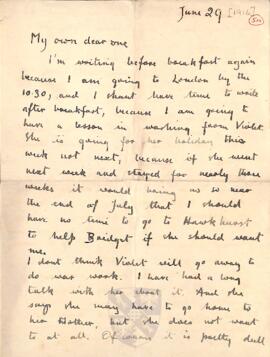 June 29 [1916]
My own dear one
I'm writing before breakfast again
because I am going to London by the
10.30, and I shant have time to write
after breakfast, because I am going to
have a lesson in washing from Violet.
She is going for her holiday this
week not next, because if she went
next week and stayed for nearly three
weeks it would bring us so near
the end of July that I should
have no time to go to Hawkhurst
to help Bridget if she should want
me.
I dont think Violet will go away to
do war work. I have had a long
talk with her about it. And she
says she may have to go home to
her Mother, but she does not want
to at all. Of course it is pretty dull